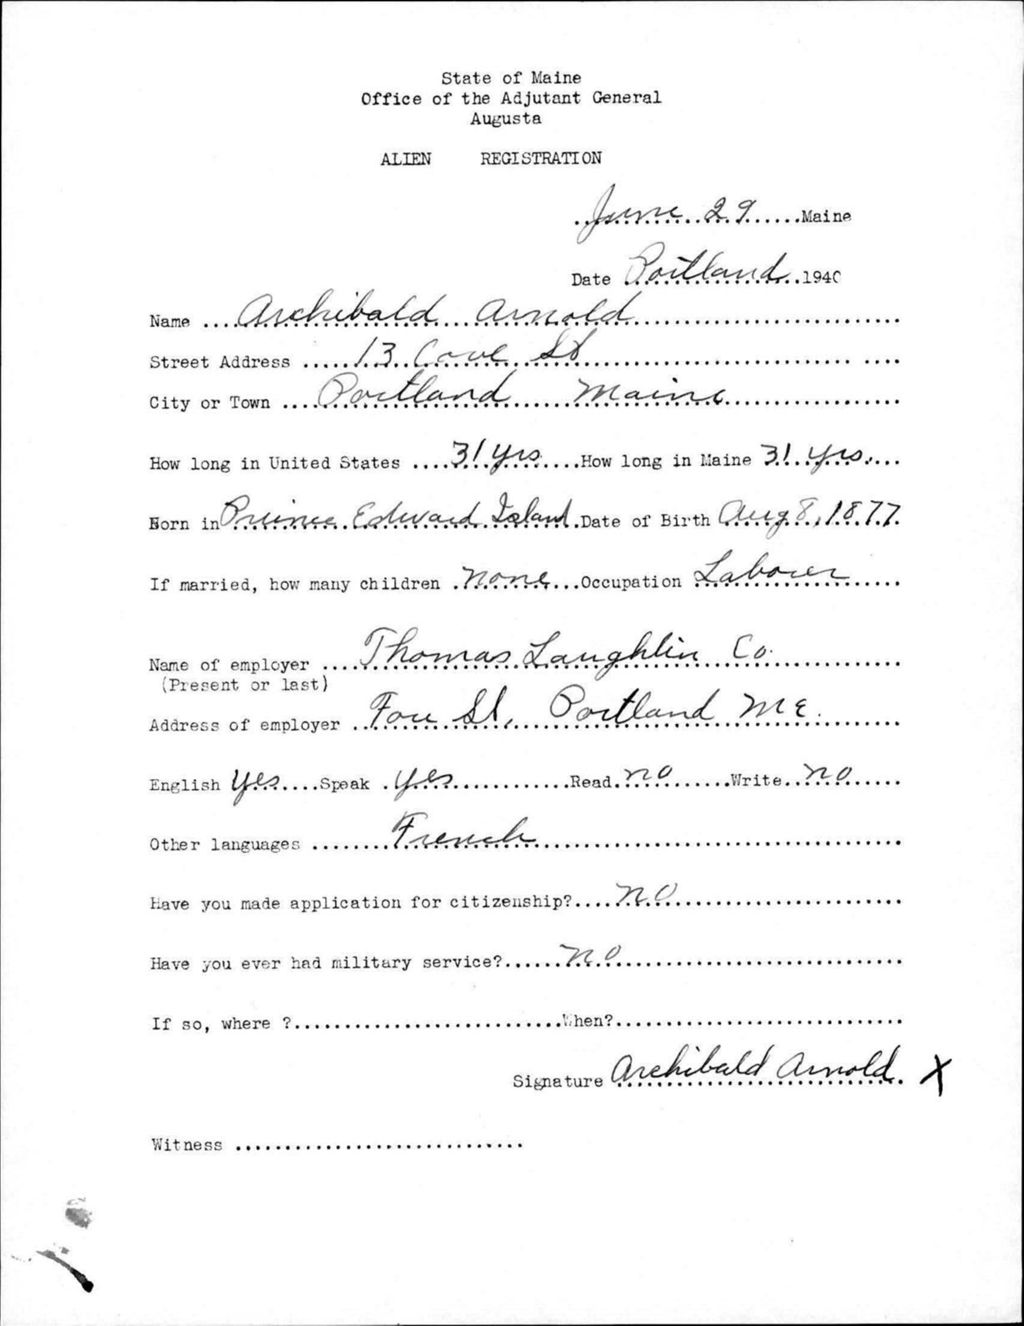 State of Maine
Office of the Adjutant General
Augusta
ALIEN REGISTRATION
June 29 Maine
Date Portland 1940
Name Archibald Arnold
Street Address 13 Cove St
City or Town Portland Maine
How long in United States 31 yrs How long in Maine 31 yrs.
Born in Prince Edward Island Date of Birth Aug 8, 1877
If married, how many children none Occupation Laborer
Name of employer Thomas Laughlin Co.
(Present or last)
Address of employer Fore St, Portland ME.
English yes Speak yes Read no Write no
Other languages French
Have you made application for citizenship? NO
Have you ever had military service? NO
If so, where ? When?
Signature Archibald Arnold. X
Witness